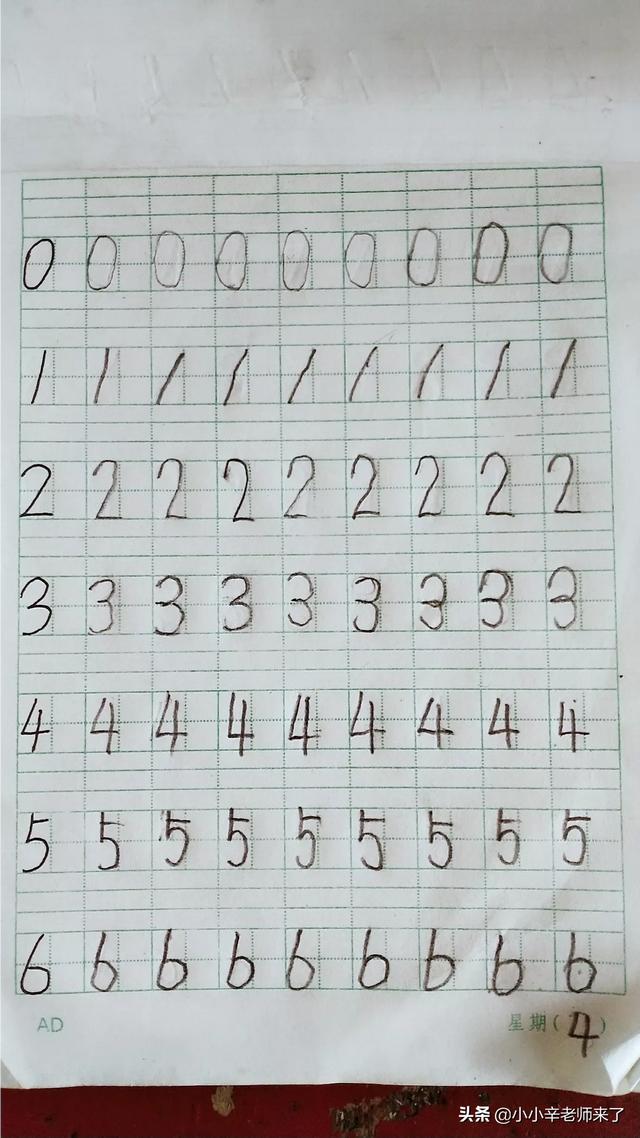 0 0 0 0 0 0 0 0 0
1 1 1 1 1 1 1 1 1
2 2 2 2 2 2 2 2 2
3 3 3 3 3 3 3 3 3
4 4 4 4 4 4 4 4 4
5 5 5 5 5 5 5 5 5
6 6 6 6 6 6 6 6 6
AD 星期(4)
头条 @小小辛老师来了